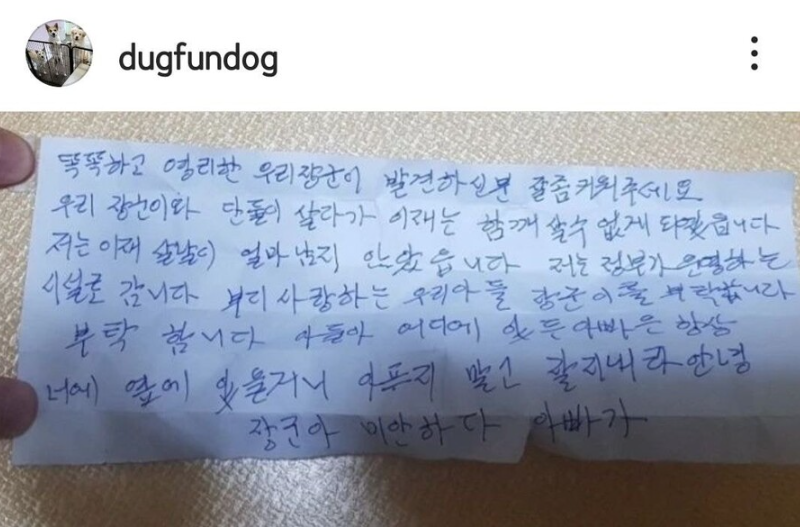 dugfundog
똑똑하고 영리한 우리장군이 발견하신분 잘좀키워주세요
우리 장군이와 단둘이 살다가 이재는 함께 살수 없게 돼겠읍니다
저는 이재 살날이 얼마남지 안았읍니다 저는 정부가 운영하는
시설로 갑니다 부디 사랑하는 우리아들 장군이를 부탁합니다
부탁 합니다 아들아 어디에 있든 아빠은 항상
너에 옆에 있을거니 아프지 말고 잘지내라 안녕
장군아 미안하다 아빠가